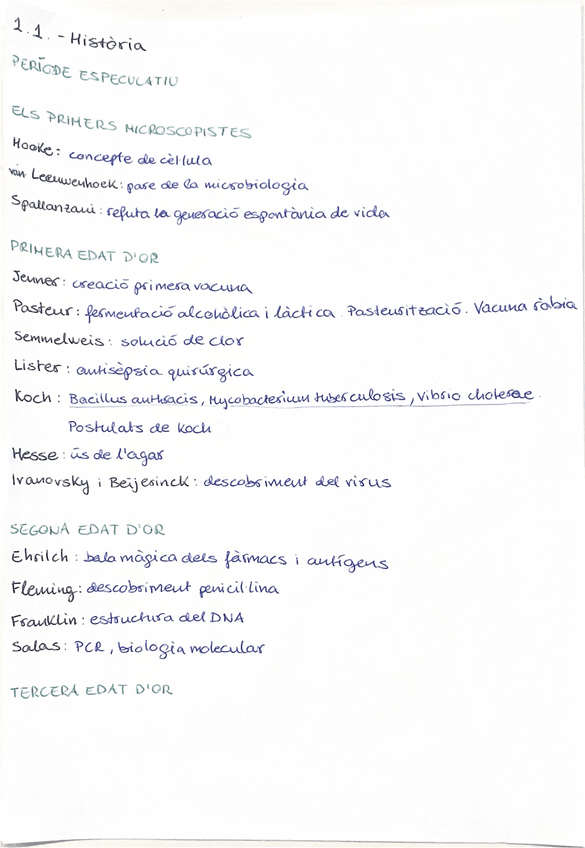 1.1. - Història
PERÍODE ESPECULATIU
ELS PRIMERS MICROSCOPISTES
Hooke: concepte de cèl·lula
van Leeuwenhoek: pare de la microbiologia
Spallanzani: refuta la generació espontània de vida
PRIMERA EDAT D'OR
Jenner: creació primera vacuna
Pasteur: fermentació alcohòlica i làctica. Pasteurització. Vacuna ràbia
Semmelweis: solució de clor
Lister: antisèpsia quirúrgica
Koch: Bacillus anthracis, Mycobacterium tuberculosis, Vibrio cholerae.
Postulats de Koch
Hesse: ús de l'agar
Ivanovsky i Beijerinck: descobriment del virus
SEGONA EDAT D'OR
Ehrilch: bala màgica dels fàrmacs i antígens
Fleming: descobriment penicil·lina
Franklin: estructura del DNA
Salas: PCR, biologia molecular
TERCERA EDAT D'OR